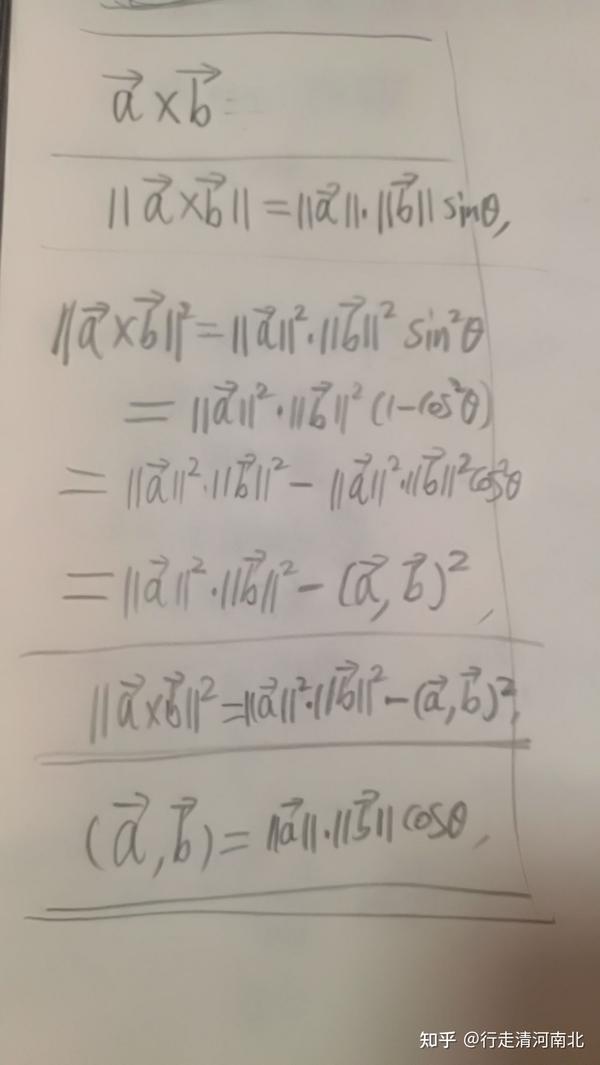 a⃗ × b⃗
||a⃗ × b⃗|| = ||a⃗||·||b⃗|| sinθ,
||a⃗ × b⃗||² = ||a⃗||²·||b⃗||² sin²θ
= ||a⃗||²·||b⃗||² (1 - cos²θ)
= ||a⃗||²·||b⃗||² - ||a⃗||²·||b⃗||² cos²θ
= ||a⃗||²·||b⃗||² - (a⃗, b⃗)²,
||a⃗ × b⃗||² = ||a⃗||²·||b⃗||² - (a⃗, b⃗)²,
(a⃗, b⃗) = ||a⃗||·||b⃗|| cosθ,
知乎 @行走清河南北